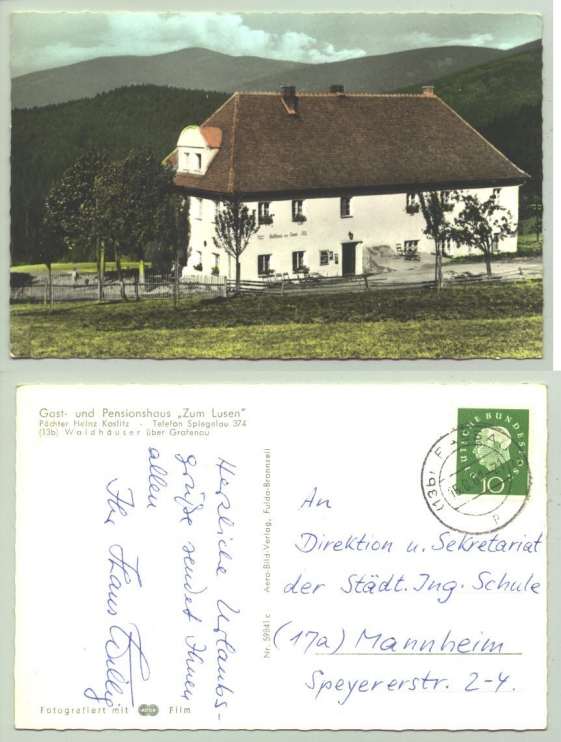 Gast- und Pensionshaus „Zum Lusen"
Pächter Heinz Kaslitz - Telefon Spiegelau 374
(13b) Waldhäuser über Grafenau
Herzliche Urlaubs-
grüße sendet Ihnen
allen
Ihr Hans
Fotografiert mit AGFA Film
Nr. 59841 c Aero-Bild-Verlag, Fulda-Bronnzell
DEUTSCHE BUNDESPOST
10
(13b)
An
Direktion u. Sekretariat
der Städt. Ing. Schule
(17a) Mannheim
Speyererstr. 2-4.